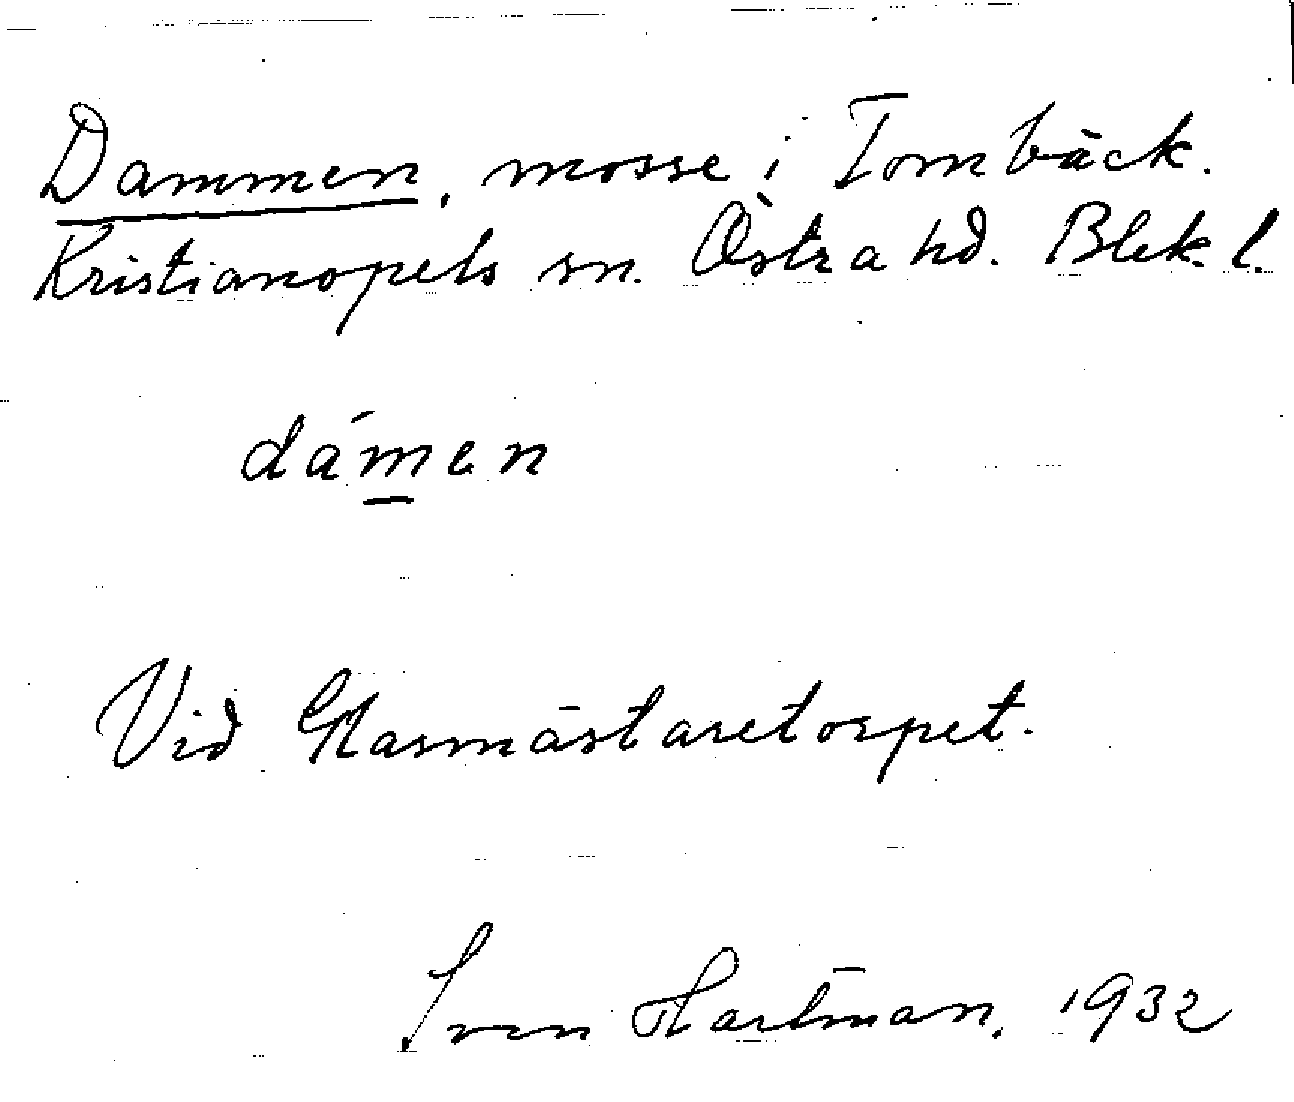 Dammen, mosse i Tombäck.
Kristianopels sn. Östra hd. Blek. l.
dámen
Vid Glasmästaretorpet.
Sven Hartman, 1932